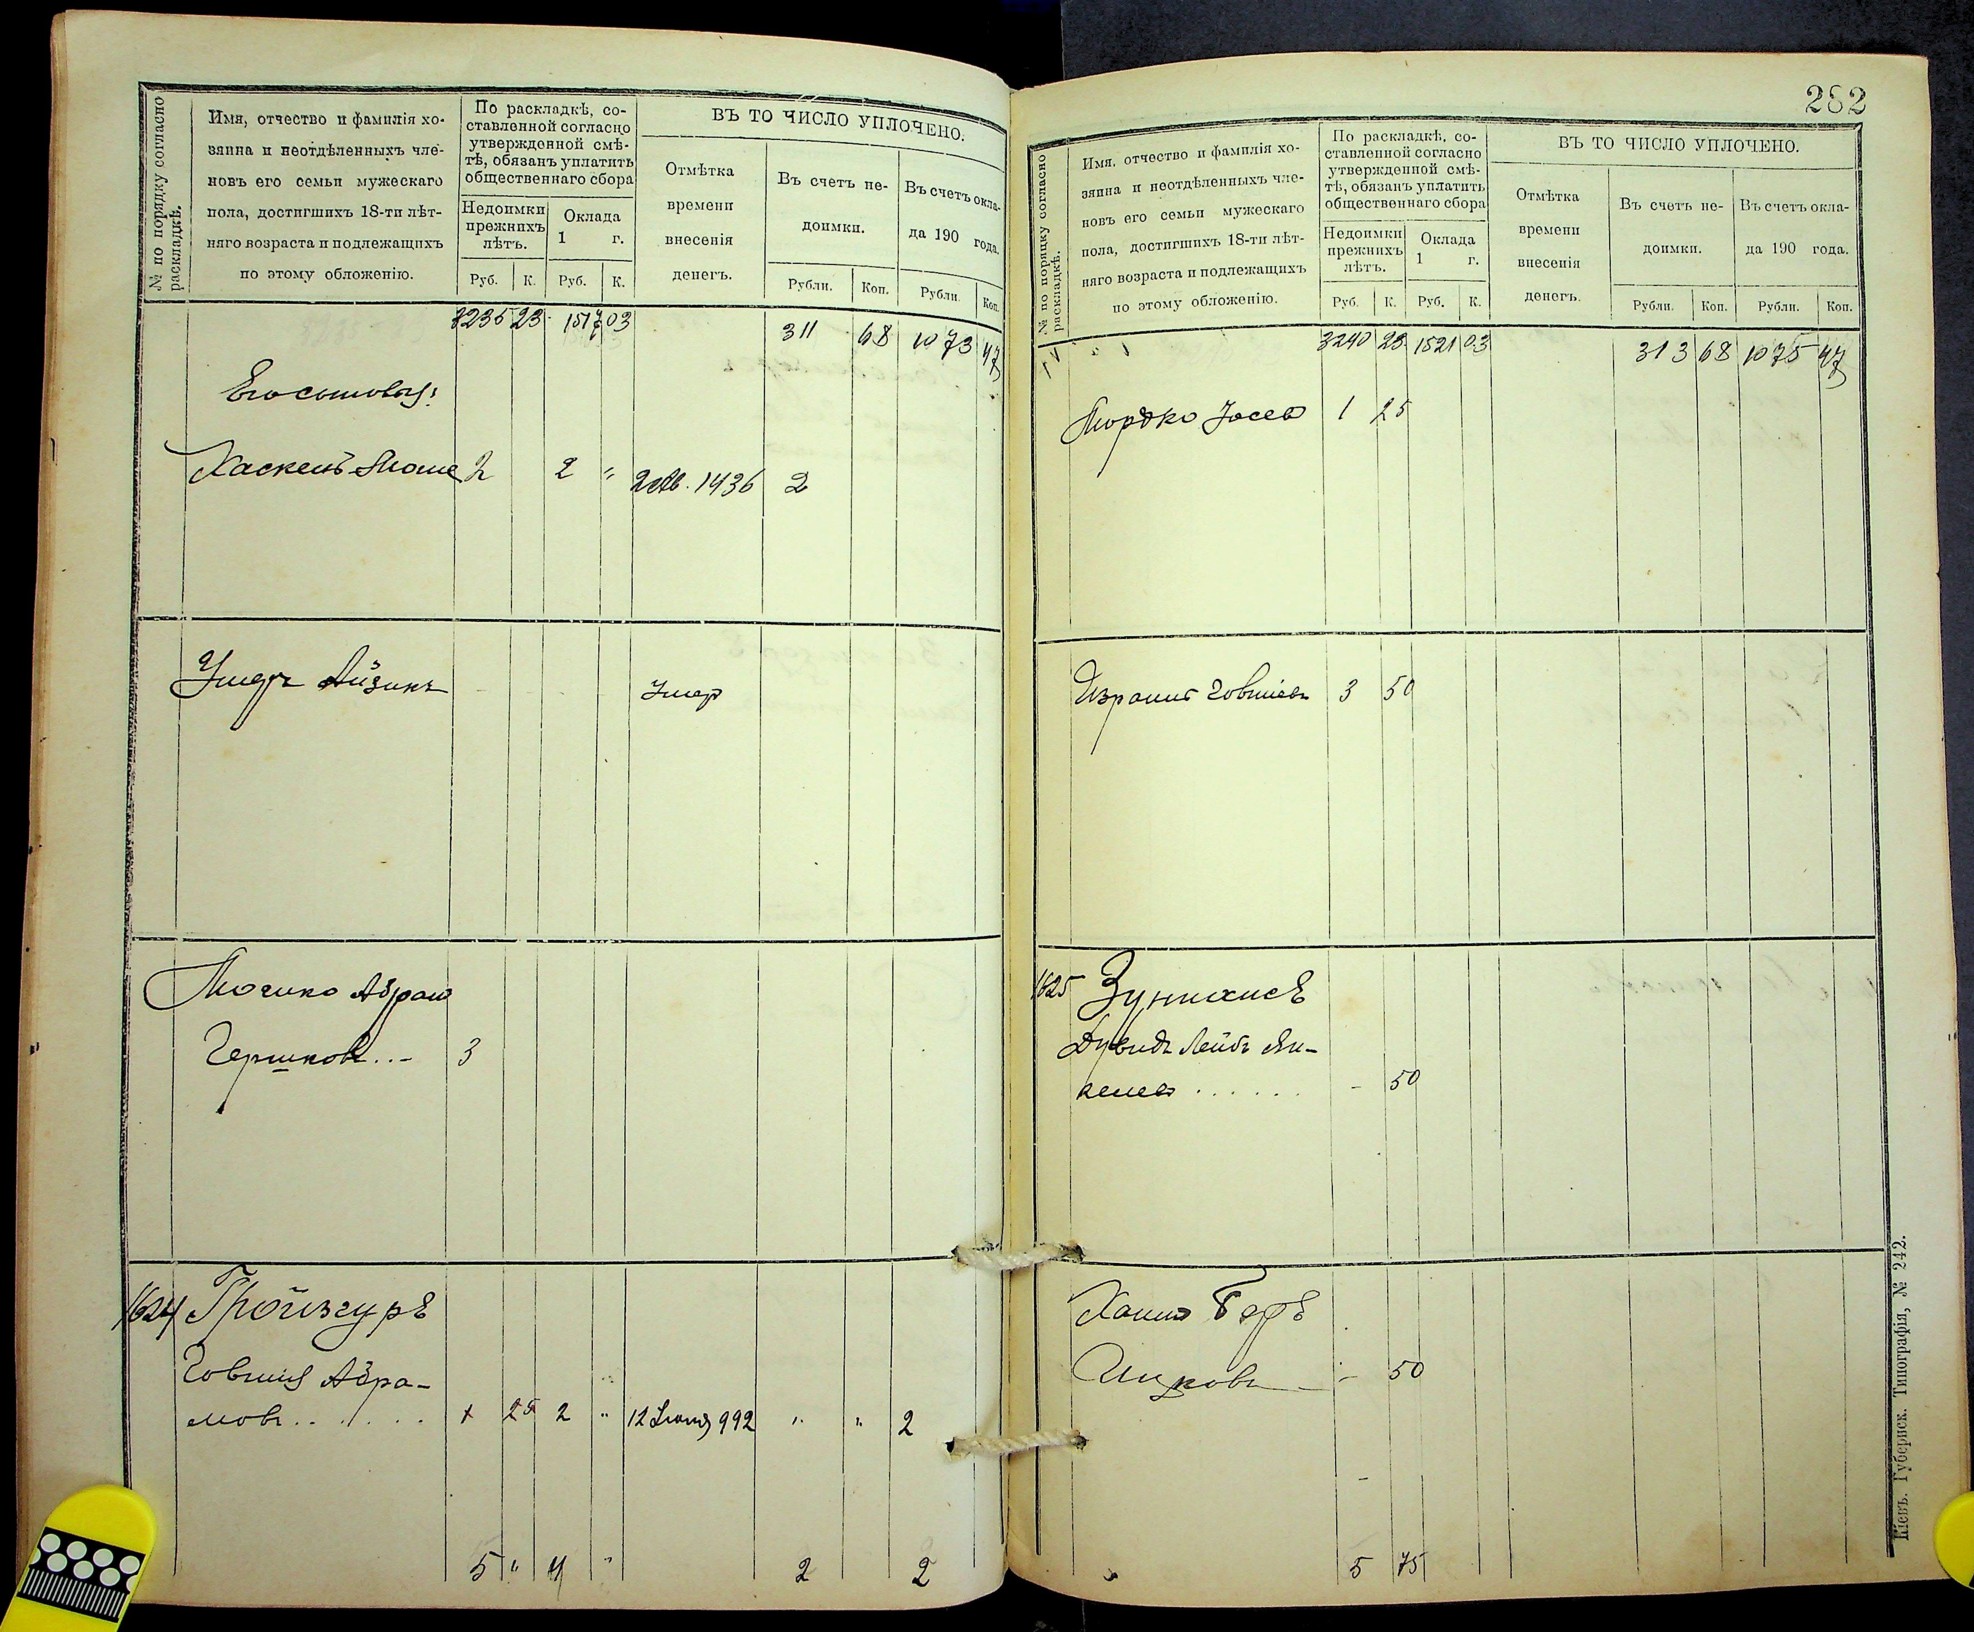 № по порядку согласно раскладкѣ.
Имя, отчество и фамилія хо-
зяина и неотдѣленныхъ чле-
новъ его семьи мужескаго
пола, достигшихъ 18-ти лѣт-
няго возраста и подлежащихъ
по этому обложенію.
По раскладкѣ, со-
ставленной согласно
утвержденной смѣ-
тѣ, обязанъ уплатить
общественнаго сбора
Недоимки
прежнихъ
лѣтъ.
Оклада
1 г.
Руб. К. Руб. К.
ВЪ ТО ЧИСЛО УПЛОЧЕНО.
Отмѣтка
времени
внесенія
денегъ.
Въ счетъ не-
доимки.
Въ счетъ окла-
да 190 года.
Рубли. Коп. Рубли. Коп.
3235 23 1517 03 311 68 1073 47
Его сыновья:
Хаскель Моше 2 2 " 1436 2
Умеръ Айзикъ Умер
Мошко Абрам
Гершков... 3
1624 Гройзгуръ
Говшія Абра-
мовъ 25 2 " 12 Іюня 992 " " 2
5 " 4 " 2 2
282
№ по порядку согласно раскладкѣ.
Имя, отчество и фамилія хо-
зяина и неотдѣленныхъ чле-
новъ его семьи мужескаго
пола, достигшихъ 18-ти лѣт-
няго возраста и подлежащихъ
по этому обложенію.
По раскладкѣ, со-
ставленной согласно
утвержденной смѣ-
тѣ, обязанъ уплатить
общественнаго сбора
Недоимки
прежнихъ
лѣтъ.
Оклада
1 г.
Руб. К. Руб. К.
ВЪ ТО ЧИСЛО УПЛОЧЕНО.
Отмѣтка
времени
внесенія
денегъ.
Въ счетъ не-
доимки.
Въ счетъ окла-
да 190 года.
Рубли. Коп. Рубли. Коп.
3240 23 1521 03 313 68 1075 47
Мордко Іосев 1 25
Израиль Говшіевъ 3 50
1625
Дувидъ Лейбъ Ян-
келев ...... - 50
Хаимъ Беръ
Ицковъ - 50
5 75
Кіевъ. Губернск. Типографія, № 242.